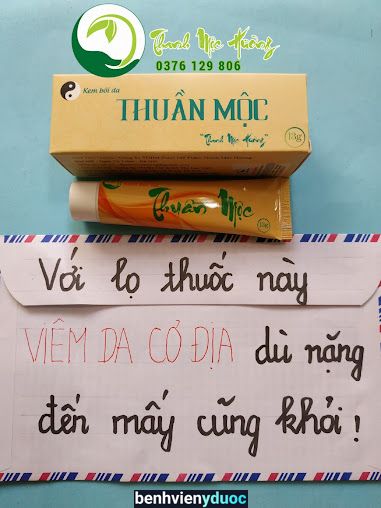 Thanh Mộc Hương
0376 129 806
Kem bôi da
THUẦN MỘC
"Thanh Mộc Hương"
15g
Thuần Mộc
15g
Với lọ thuốc này
VIÊM DA CƠ ĐỊA dù nặng
đến mấy cũng khỏi!
benhvienyduoc